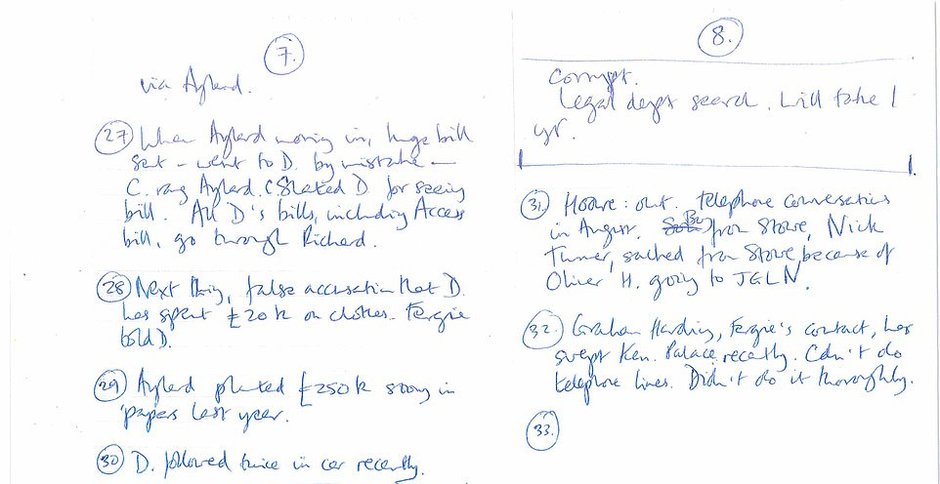 7.
via Aylard.
27 When Aylard moving in, huge bill
sent – went to D. by mistake –
C. rang Aylard. C slated D for seeing
bill. All D's bills, including Access
bill, go through Richard.
28 Next thing, false accusation that D.
has spent £20k on clothes. Fergie
told D.
29 Aylard planted £250k story in
'papers last year.
30 D. followed twice in car recently.
8.
Corrupt.
Legal dept search. Will take 1
yr.
31. Hoare: out. Telephone conversations
in August. from Stowe, Nick
Turner, sacked from Stowe because of
Oliver H. going to JELN.
32. Graham Harding, Fergie's contact, has
swept Ken. Palace recently. Can't do
telephone lines. Didn't do it thoroughly.
33.